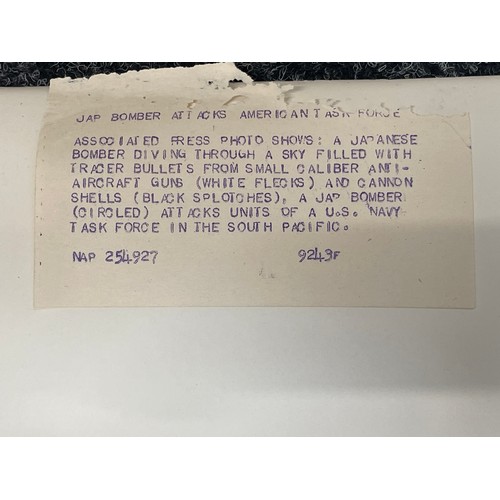 JAP BOMBER ATTACKS AMERICAN TASK FORCE
ASSOCIATED PRESS PHOTO SHOWS: A JAPANESE
BOMBER DIVING THROUGH A SKY FILLED WITH
TRACER BULLETS FROM SMALL CALIBER ANTI-
AIRCRAFT GUNS (WHITE FLECKS) AND CANNON
SHELLS (BLACK SPLOTCHES), A JAP BOMBER
(CIRCLED) ATTACKS UNITS OF A U.S. NAVY
TASK FORCE IN THE SOUTH PACIFIC.
NAP 254927 9243F